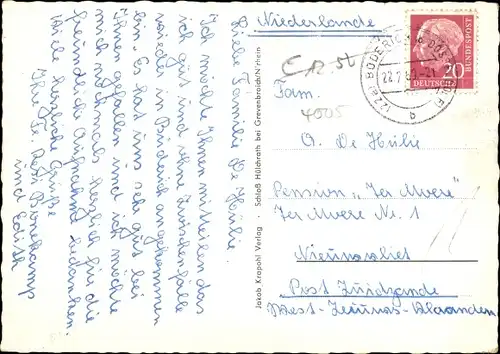 Liebe Familie De Hulie.
Ich möchte Ihnen mitteilen das
ich gut und ohne Zwischenfälle
wieder in Büderich angekommen
bin. Es hat uns sehr gut bei
Ihnen gefallen und ich möchte
mich nochmals herzlich für die
freundliche Aufnahme bedanken.
Viele herzliche Grüße
Ihre Fr.
und Edith
Jakob Krapohl Verlag - Schloß Hülchrath bei Grevenbroich/N'rhein
Niederlande
DEUTSCHE BUNDESPOST
20
BÜDERICH
b
4005
Fam.
A. De Hulie
Pension "Ter Mvere"
Ter Mvere Nr. 1
Nieuwvliet
Post Zuidzande